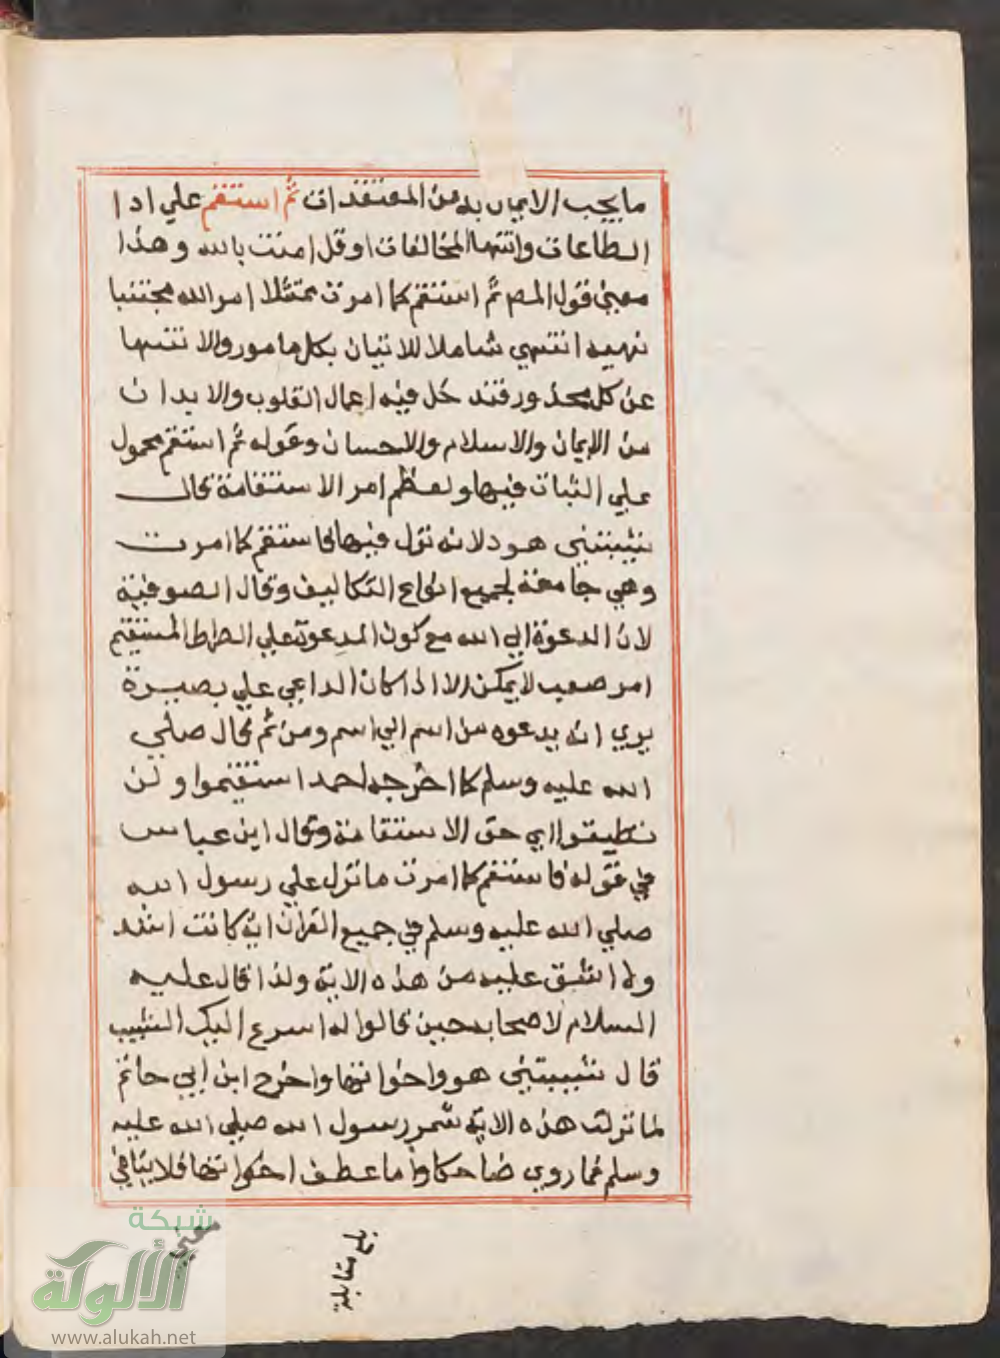 ما يجب الايمان به من المعتقدات ثم استقم علي ادا
الطاعات وانتها المخالفات او قل امنت بالله وهذا
معني قول المص ثم استقم كما امرت ممتثلا امر الله مجتنبا
نهيه انتهي شاملا للاتيان بكل مامور والانتها
عن كل محذور فتدخل فيه اعمال القلوب والابدان
من الايمان والاسلام والاحسان وقوله ثم استقم محمول
علي الثبات فيها ولعظم امر الاستقامة قال
شيبتني هود لانه نزل فيها فاستقم كما امرت
وهي جامعة لجميع انواع التكاليف وقال الصوفية
لان الدعوة الي الله مع كون المدعوة علي الصراط المستقيم
امر صعب لا يمكن الا اذا كان الداعي علي بصيرة
يري انه يدعوه من اسم الي اسم ومن ثم قال صلي
الله عليه وسلم كما اخرجه احمد استقيموا ولن
تطيقوا اي حق الاستقامة وقال ابن عباس
في قوله فاستقم كما امرت ما نزل علي رسول الله
صلي الله عليه وسلم في جميع القران اية كانت اشد
ولا اشق عليه من هذه الاية ولذا قال عليه
السلام لاصحابه حين قالوا له اسرع اليك الشيب
قال شيبتني هود واخواتها واخرج ابن ابي حاتم
لما نزلت هذه الاية شمر رسول الله صلي الله عليه
وسلم فما روي ضاحكا واما عطف اخواتها فلا ينافي
معني
بلغ مقابلة
شبكة
الألوكة
www.alukah.net